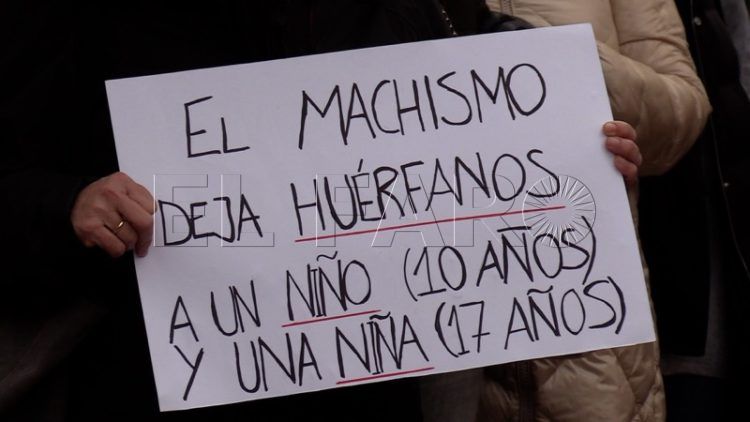 EL MACHISMO
DEJA HUÉRFANOS
EL FARO
A UN NIÑO (10 AÑOS)
Y UNA NIÑA (17 AÑOS)